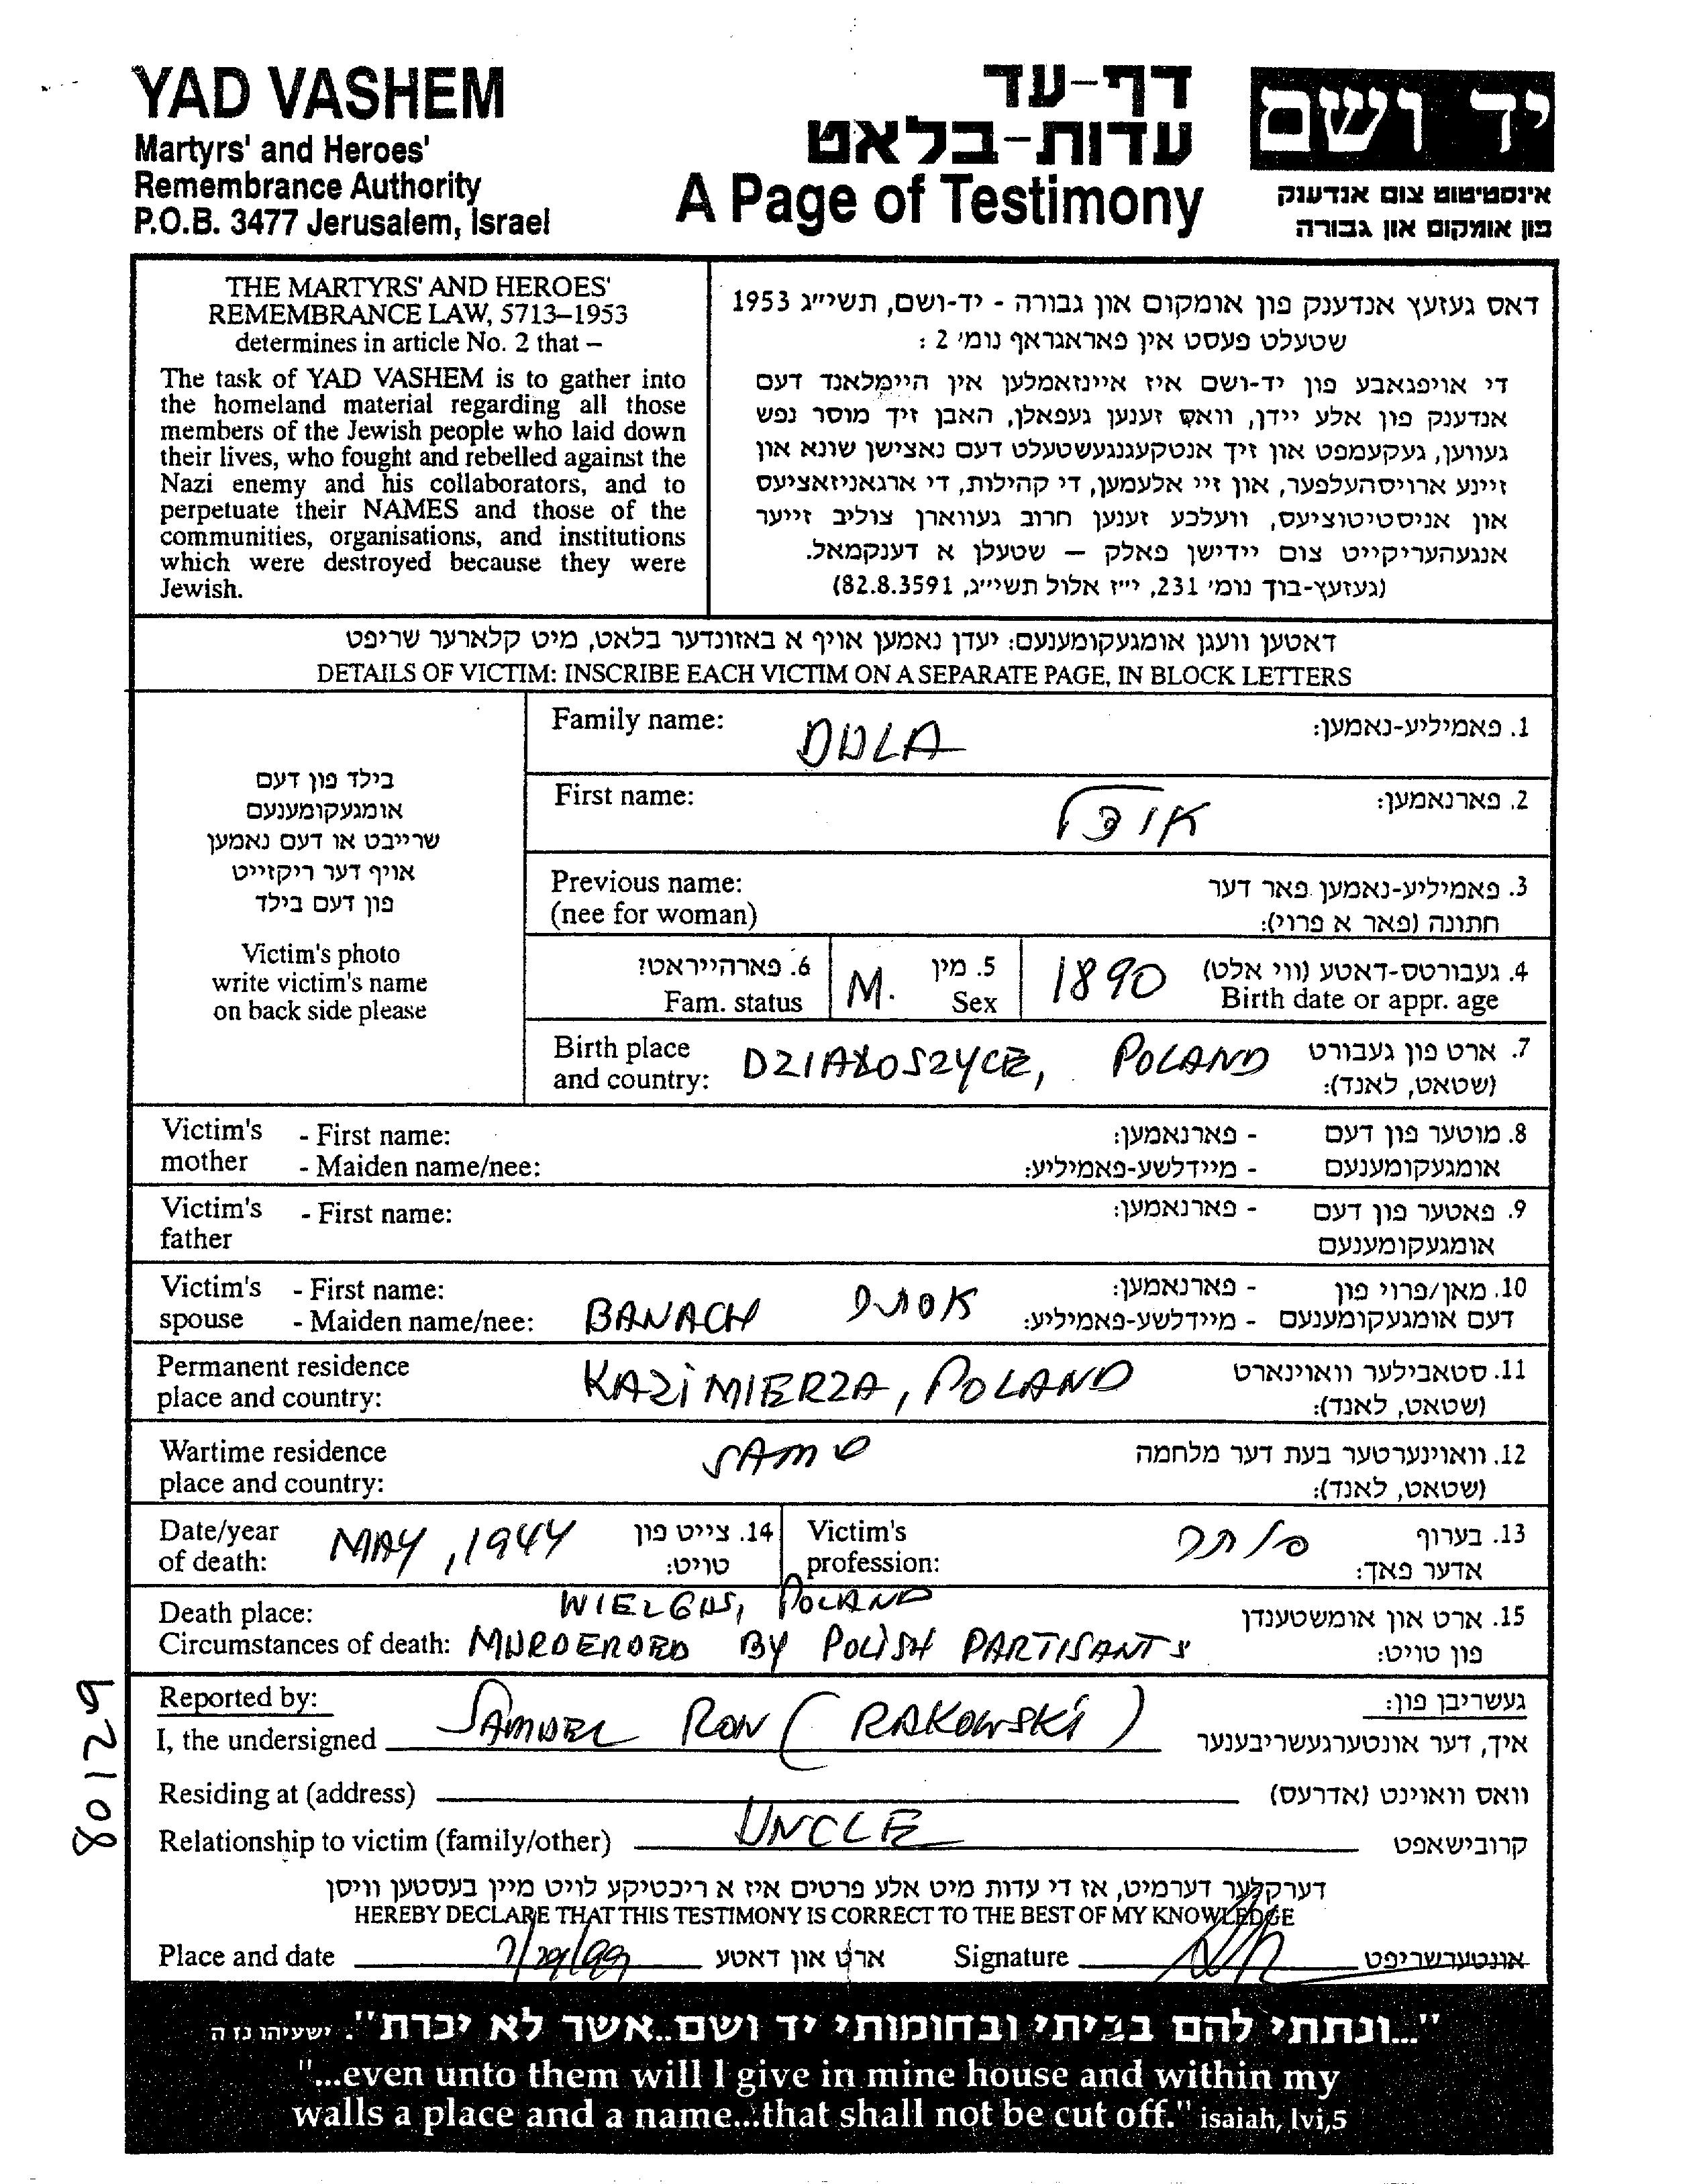 YAD VASHEM
Martyrs' and Heroes'
Remembrance Authority
P.O.B. 3477 Jerusalem, Israel
דף-עד
עדות-בלאט
A Page of Testimony
יד ושם
אינסטיטוט צום אנדענק
פון אומקום און גבורה
THE MARTYRS' AND HEROES'
REMEMBRANCE LAW, 5713–1953
determines in article No. 2 that –
The task of YAD VASHEM is to gather into
the homeland material regarding all those
members of the Jewish people who laid down
their lives, who fought and rebelled against the
Nazi enemy and his collaborators, and to
perpetuate their NAMES and those of the
communities, organisations, and institutions
which were destroyed because they were
Jewish.
דאס געזעץ אנדענק פון אומקום און גבורה - יד-ושם, תשי״ג 1953
שטעלט פעסט אין פאראגראף נומ׳ 2 :
די אויפגאבע פון יד-ושם איז איינזאמלען אין היימלאנד דעם
אנדענק פון אלע יידן, וואס זענען געפאלן, האבן זיך מוסר נפש
געווען, געקעמפט און זיך אנטקעגנגעשטעלט דעם נאצישן שונא און
זיינע ארויסהעלפער, און זיי אלעמען, די קהילות, די ארגאניזאציעס
און אניסטיטוציעס, וועלכע זענען חרוב געווארן צוליב זייער
אנגעהעריקייט צום יידישן פאלק – שטעלן א דענקמאל.
(געזעץ-בוך נומ׳ 231, י״ז אלול תשי״ג, 82.8.3591)
דאטען וועגן אומגעקומענעם: יעדן נאמען אויף א באזונדער בלאט, מיט קלארער שריפט
DETAILS OF VICTIM: INSCRIBE EACH VICTIM ON A SEPARATE PAGE, IN BLOCK LETTERS
בילד פון דעם
אומגעקומענעם
שרייבט או דעם נאמען
אויף דער ריקזייט
פון דעם בילד
Victim's photo
write victim's name
on back side please
Family name: DULA 1. פאמיליע-נאמען:
First name: 2. פארנאמען:
Previous name: 3. פאמיליע-נאמען פאר דער
(nee for woman) חתונה (פאר א פרוי):
6. פארהייראטז M. 5. מין 1890 4. געבורטס-דאטע (ווי אלט)
Fam. status Sex Birth date or appr. age
Birth place DZIAŁOSZYCE, POLAND 7. ארט פון געבורט
and country: (שטאט, לאנד):
Victim's - First name: - פארנאמען: 8. מוטער פון דעם
mother - Maiden name/nee: - מיידלשע-פאמיליע: אומגעקומענעם
Victim's - First name: - פארנאמען: 9. פאטער פון דעם
father אומגעקומענעם
Victim's - First name: - פארנאמען: 10. מאן/פרוי פון
spouse - Maiden name/nee: BANACH אסתר - מיידלשע-פאמיליע: דעם אומגעקומענעם
Permanent residence 11. סטאבילער וואוינארט
place and country: KAZIMIERZA, POLAND (שטאט, לאנד):
Wartime residence SAME 12. וואוינערטער בעת דער מלחמה
place and country: (שטאט, לאנד):
Date/year MAY, 1944 14. צייט פון Victim's סוחר 13. בערוף
of death: טויט: profession: אדער פאך:
Death place: WIELGUS, POLAND 15. ארט און אומשטענדן
Circumstances of death: MURDERDED BY POLISH PARTISANTS פון טויט:
Reported by: געשריבן פון:
I, the undersigned SAMUEL RON (RAKOWSKI) איך, דער אונטערגעשריבענער
Residing at (address) וואס וואוינט (אדרעס)
Relationship to victim (family/other) UNCLE קרובישאפט
דערקלער דערמיט, אז די עדות מיט אלע פרטים איז א ריכטיקע לויט מיין בעסטען וויסן
HEREBY DECLARE THAT THIS TESTIMONY IS CORRECT TO THE BEST OF MY KNOWLEDGE
Place and date ארט און דאטע Signature אונטערשריפט
80129
"...ונתתי להם בביתי ובחומותי יד ושם..אשר לא יכרת". ישעיהו נז ה
"...even unto them will I give in mine house and within my
walls a place and a name...that shall not be cut off." isaiah, lvi,5